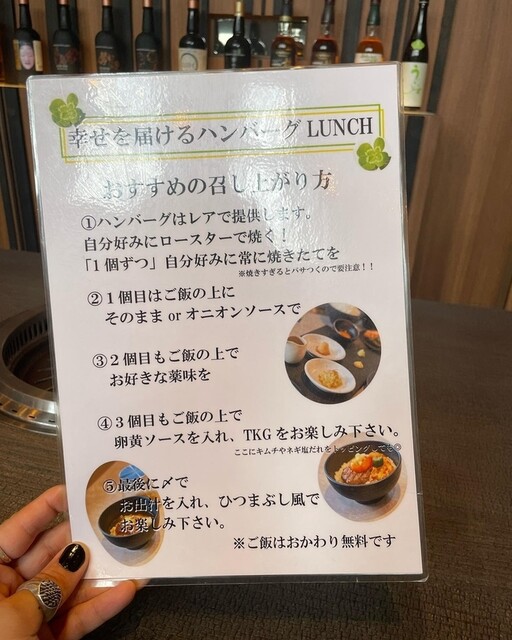 幸せを届けるハンバーグ LUNCH
おすすめの召し上がり方
①ハンバーグはレアで提供します。
自分好みにロースターで焼く！
「1個ずつ」自分好みに常に焼きたてを
※焼きすぎるとパサつくので要注意！！
②1個目はご飯の上に
そのまま or オニオンソースで
③2個目もご飯の上で
お好きな薬味を
④3個目もご飯の上で
卵黄ソースを入れ、TKG をお楽しみ下さい。
ここにキムチやネギ塩だれをトッピング
⑤最後に〆で
お出汁を入れ、ひつまぶし風で
お楽しみ下さい。
※ご飯はおかわり無料です